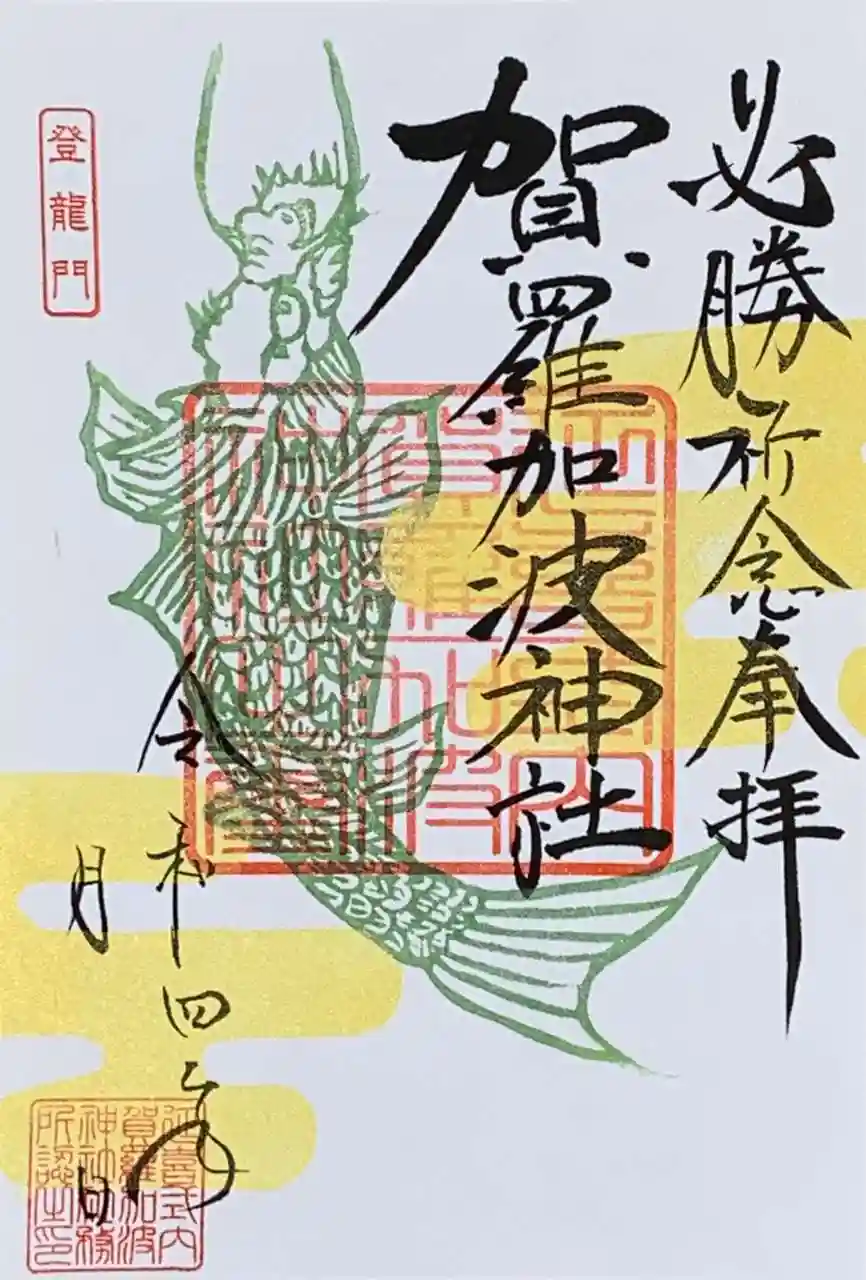 必勝祈念奉拝
賀羅加波神社
登龍門
令和四年
月 日
延喜式内
賀羅加波
神社社務
所認之印